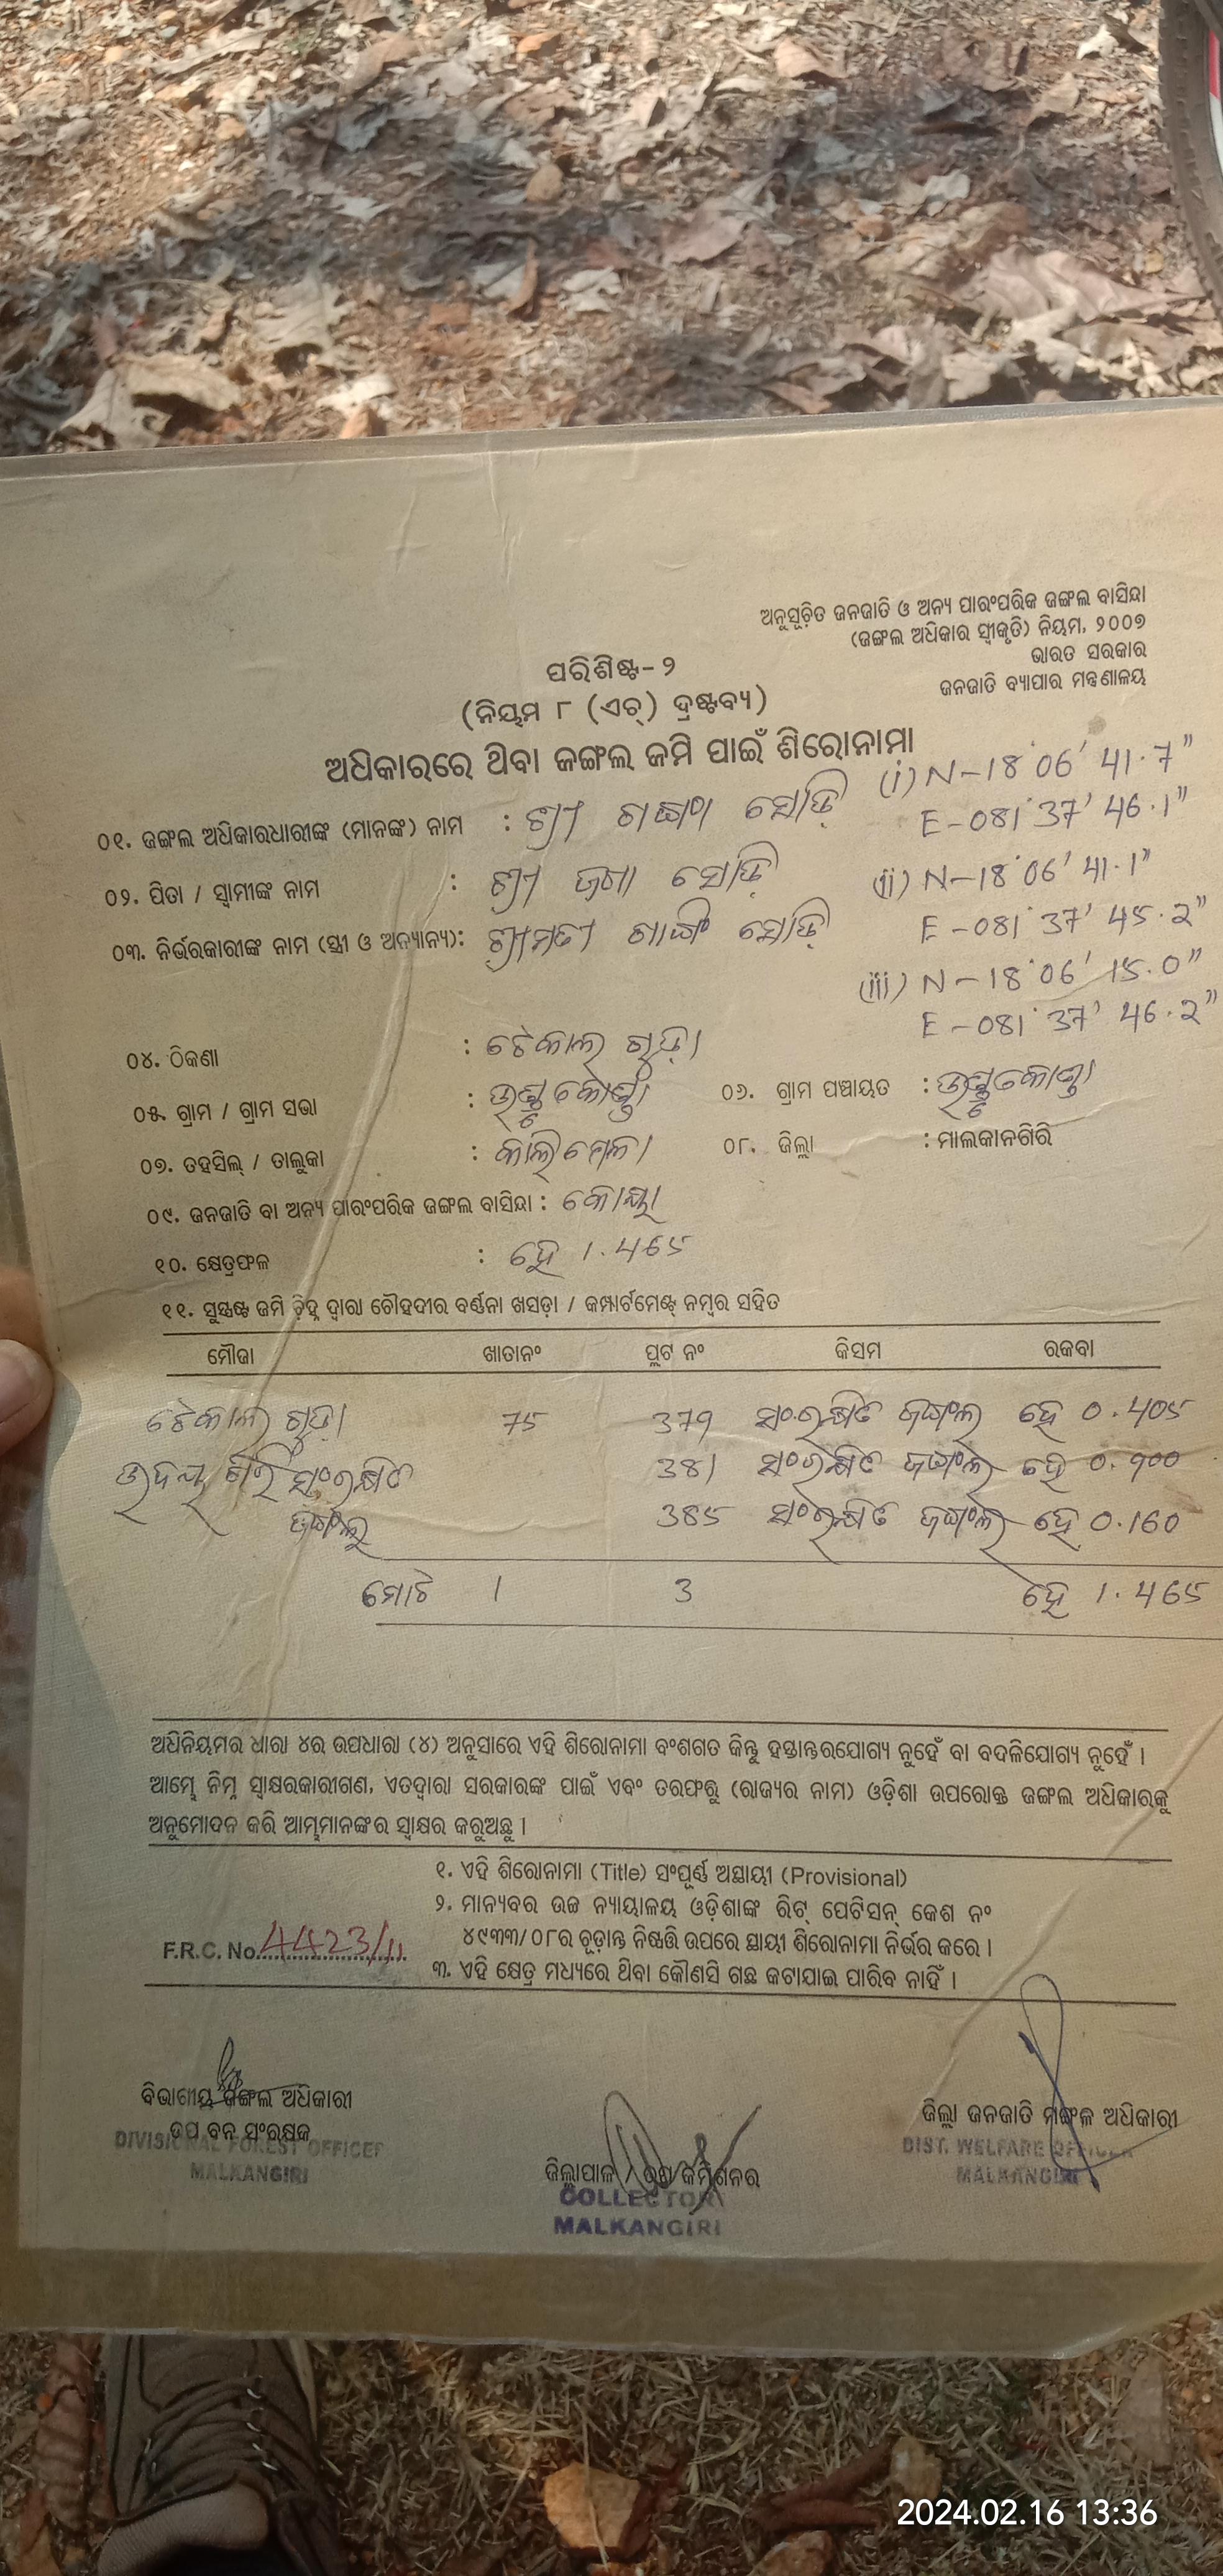 ଅନୁସୂଚିତ ଜନଜାତି ଓ ଅନ୍ୟ ପାରଂପରିକ ଜଙ୍ଗଲ ବାସିନ୍ଦା
(ଜଙ୍ଗଲ ଅଧିକାର ସ୍ୱୀକୃତି) ନିୟମ, ୨୦୦୭
ଭାରତ ସରକାର
ଜନଜାତି ବ୍ୟାପାର ମନ୍ତ୍ରଣାଳୟ
ପରିଶିଷ୍ଟ-୨
(ନିୟମ ୮ (ଏଚ୍) ଦ୍ରଷ୍ଟବ୍ୟ)
ଅଧିକାରରେ ଥିବା ଜଙ୍ଗଲ ଜମି ପାଇଁ ଶିରୋନାମା
(i) N-18°06' 41.7"
E-081°37' 46.1"
୦୧. ଜଙ୍ଗଲ ଅଧିକାରଧାରୀଙ୍କ (ମାନଙ୍କ) ନାମ : ଶ୍ରୀ ସୋଡ଼ି
(ii) N-18°06' 41.1"
୦୨. ପିତା / ସ୍ୱାମୀଙ୍କ ନାମ : ଶ୍ରୀ ସୋଡ଼ି
E-081°37' 45.2"
୦୩. ନିର୍ଭରକାରୀଙ୍କ ନାମ (ସ୍ତ୍ରୀ ଓ ଅନ୍ୟାନ୍ୟ): ଶ୍ରୀମତୀ ସୋଡ଼ି
(iii) N-18°06' 15.0"
E-081°37' 46.2"
୦୪. ଠିକଣା : ଟେକାଲ ଗୁଡ଼ା
୦୫. ଗ୍ରାମ / ଗ୍ରାମ ସଭା : ୦୬. ଗ୍ରାମ ପଞ୍ଚାୟତ :
୦୭. ତହସିଲ୍ / ତାଲୁକା : କାଲିମେଳା ୦୮. ଜିଲ୍ଲା : ମାଲକାନଗିରି
୦୯. ଜନଜାତି ବା ଅନ୍ୟ ପାରଂପରିକ ଜଙ୍ଗଲ ବାସିନ୍ଦା : କୋୟା
୧୦. କ୍ଷେତ୍ରଫଳ : ହେ 1.465
୧୧. ସୁସ୍ପଷ୍ଟ ଜମି ଚିହ୍ନ ଦ୍ୱାରା ଚୌହଦୀର ବର୍ଣ୍ଣନା ଖସଡ଼ା / କମ୍ପାର୍ଟମେଣ୍ଟ୍ ନମ୍ବର ସହିତ
ମୌଜା ଖାତାନଂ ପ୍ଲଟ ନଂ କିସମ ରକବା
ଟେକାଲ ଗୁଡ଼ା 75 379 ସଂରକ୍ଷିତ ଜଙ୍ଗଲ ହେ 0.405
ଗିରି ସଂରକ୍ଷିତ 381 ସଂରକ୍ଷିତ ଜଙ୍ଗଲ ହେ 0.900
ଜଙ୍ଗଲ 385 ସଂରକ୍ଷିତ ଜଙ୍ଗଲ ହେ 0.160
ମୋଟ 1 3 ହେ 1.465
ଅଧିନିୟମର ଧାରା ୪ର ଉପଧାରା (୪) ଅନୁସାରେ ଏହି ଶିରୋନାମା ବଂଶଗତ କିନ୍ତୁ ହସ୍ତାନ୍ତରଯୋଗ୍ୟ ନୁହେଁ ବା ବଦଳିଯୋଗ୍ୟ ନୁହେଁ ।
ଆମ୍ଭେ ନିମ୍ନ ସ୍ୱାକ୍ଷରକାରୀଗଣ, ଏତଦ୍ୱାରା ସରକାରଙ୍କ ପାଇଁ ଏବଂ ତରଫରୁ (ରାଜ୍ୟର ନାମ) ଓଡ଼ିଶା ଉପରୋକ୍ତ ଜଙ୍ଗଲ ଅଧିକାରକୁ
ଅନୁମୋଦନ କରି ଆମ୍ଭମାନଙ୍କର ସ୍ୱାକ୍ଷର କରୁଅଛୁ ।
୧. ଏହି ଶିରୋନାମା (Title) ସଂପୂର୍ଣ୍ଣ ଅସ୍ଥାୟୀ (Provisional)
୨. ମାନ୍ୟବର ଉଚ୍ଚ ନ୍ୟାୟାଳୟ ଓଡ଼ିଶାଙ୍କ ରିଟ୍ ପେଟିସନ୍ କେଶ ନଂ
୪୯୩୩/୦୮ର ଚୂଡ଼ାନ୍ତ ନିଷ୍ପତ୍ତି ଉପରେ ସ୍ଥାୟୀ ଶିରୋନାମା ନିର୍ଭର କରେ ।
F.R.C. No. 4423/11
୩. ଏହି କ୍ଷେତ୍ର ମଧ୍ୟରେ ଥିବା କୌଣସି ଗଛ କଟାଯାଇ ପାରିବ ନାହିଁ ।
ବିଭାଗୀୟ ଜଙ୍ଗଲ ଅଧିକାରୀ
ଉପ ବନ ସଂରକ୍ଷକ
DIVISIONAL FOREST OFFICER
MALKANGIRI
ଜିଲ୍ଲାପାଳ / ଉପ କମିଶନର
COLLECTOR
MALKANGIRI
ଜିଲ୍ଲା ଜନଜାତି ମଙ୍ଗଳ ଅଧିକାରୀ
DIST. WELFARE OFFICER
MALKANGIRI
2024.02.16 13:36